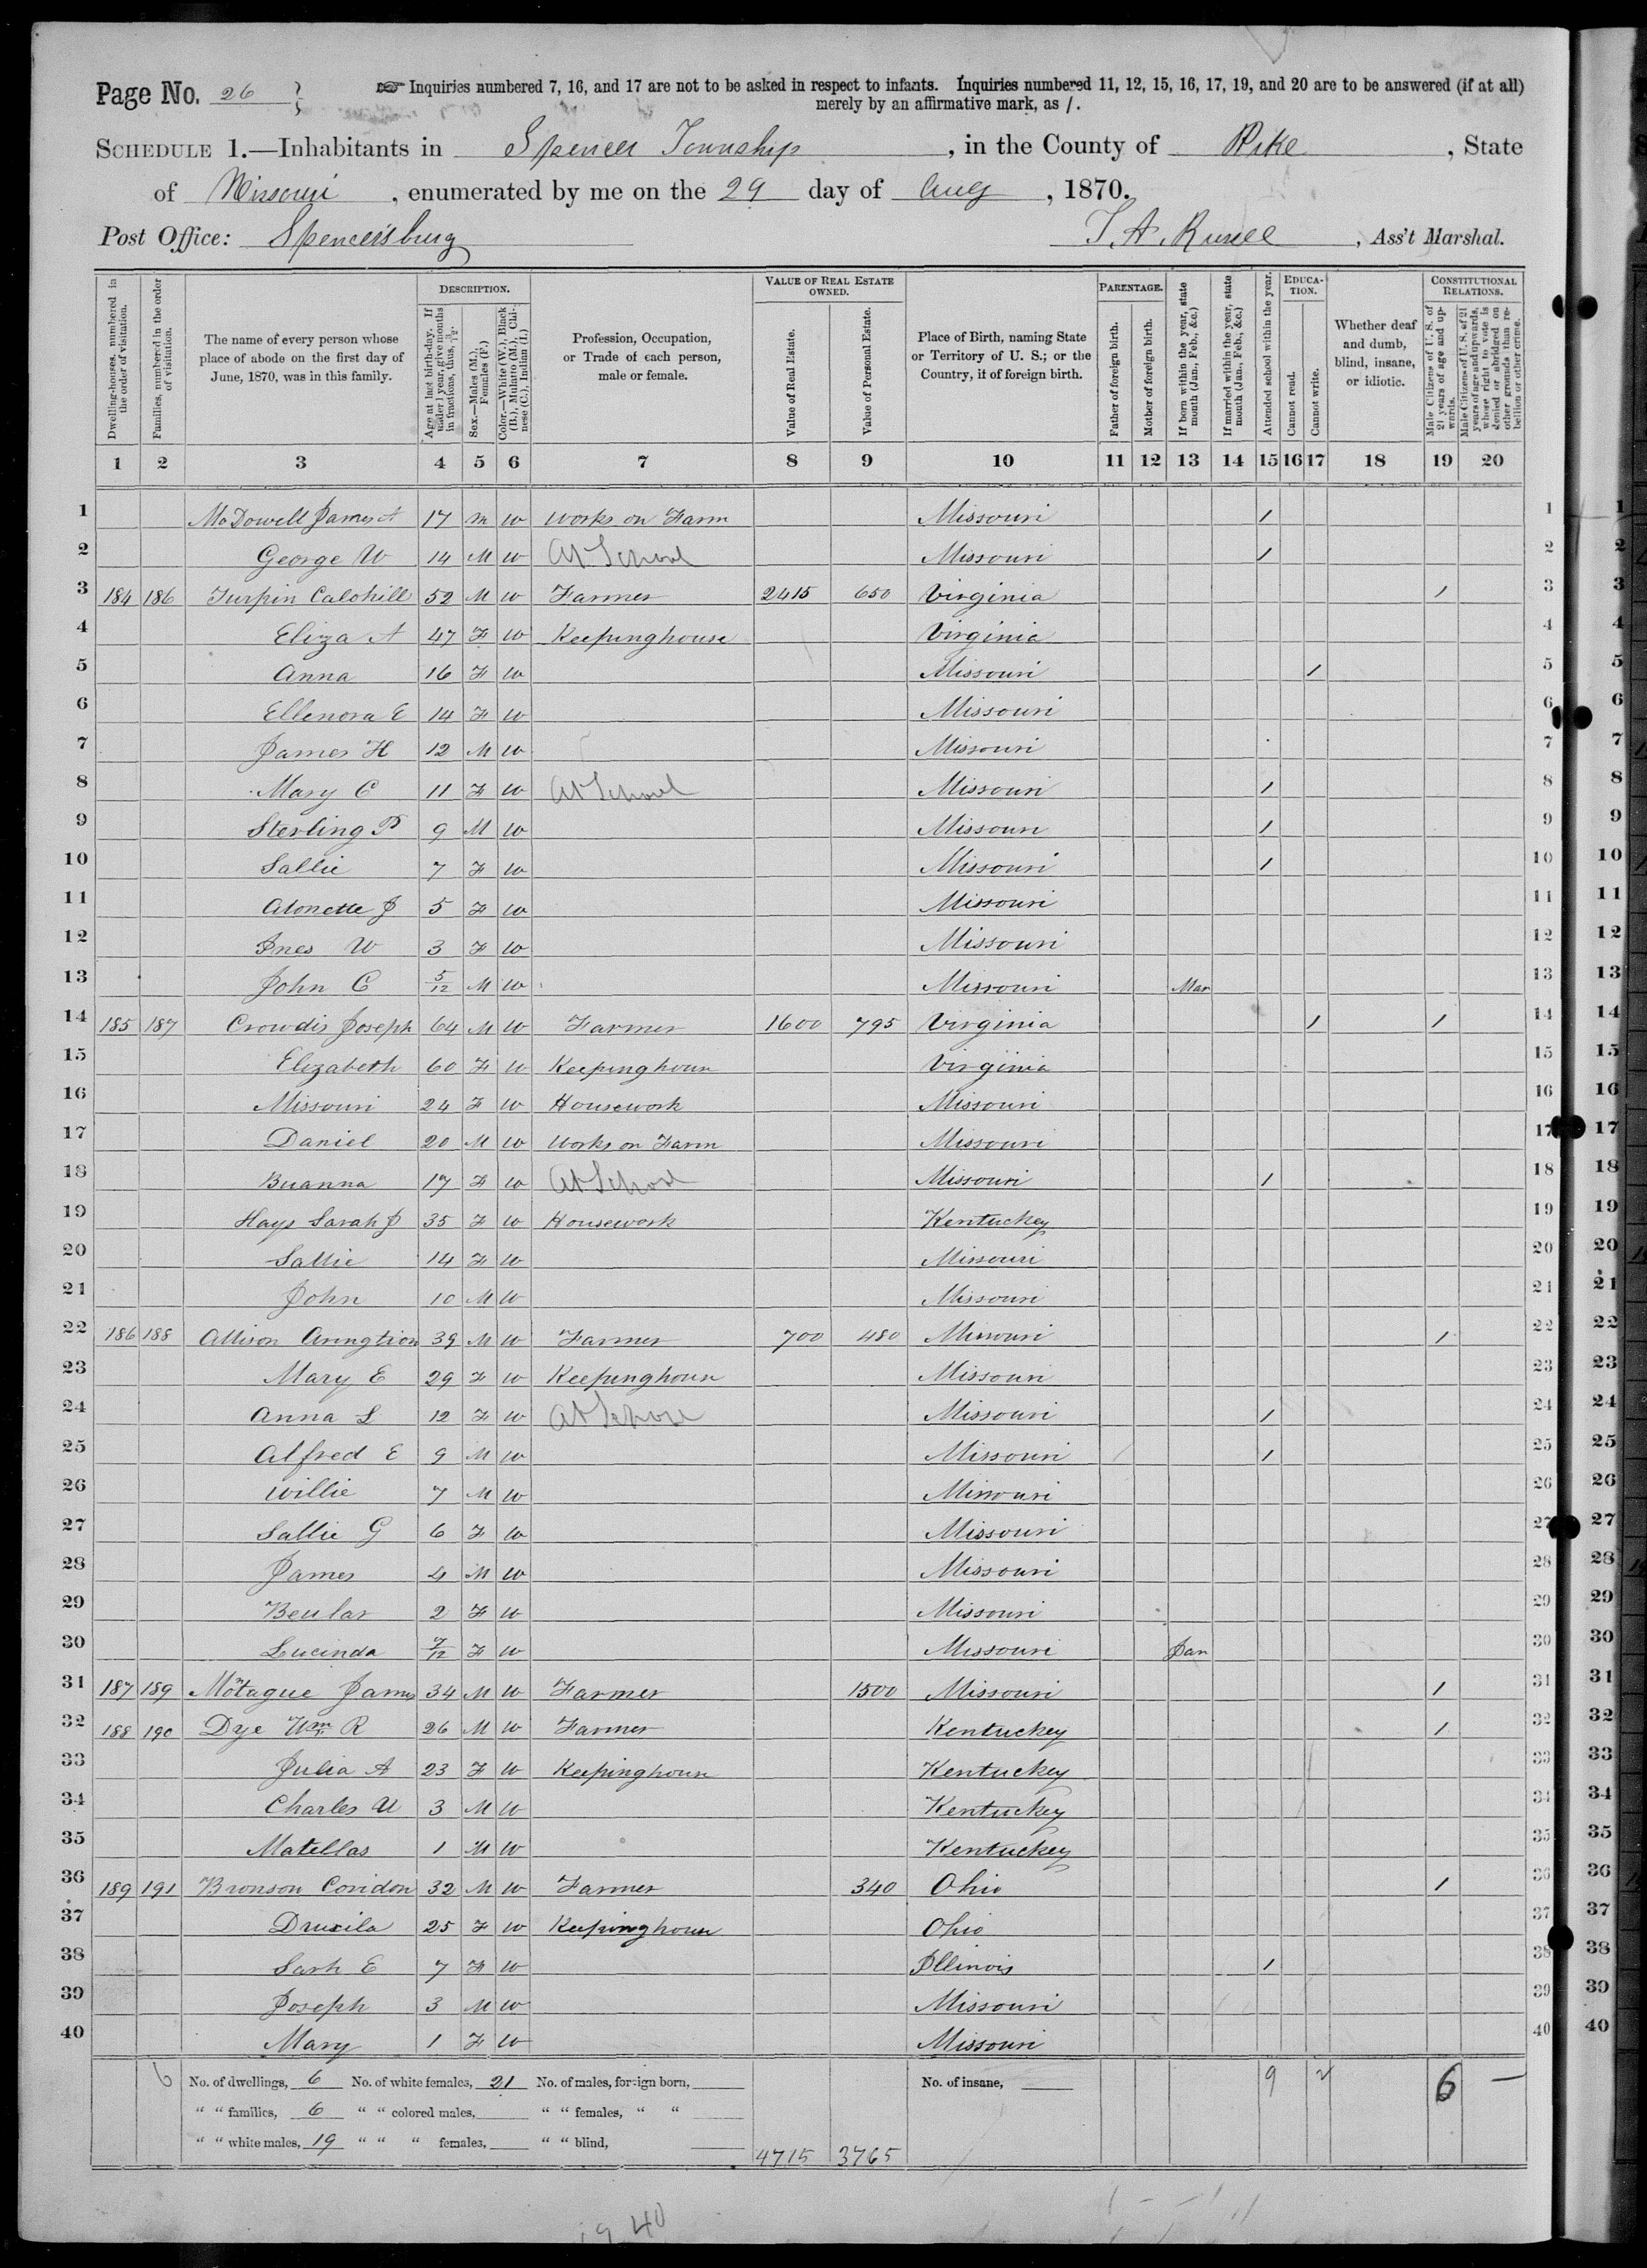 Page No. 26
☞ Inquiries numbered 7, 16, and 17 are not to be asked in respect to infants. Inquiries numbered 11, 12, 15, 16, 17, 19, and 20 are to be answered (if at all)
merely by an affirmative mark, as /.
SCHEDULE 1.—Inhabitants in Spencer Township, in the County of Pike, State
of Missouri, enumerated by me on the 29 day of Aug, 1870.
Post Office: Spencersburg
, Ass't Marshal.
Dwelling-houses, numbered in the order of visitation.
Families, numbered in the order of visitation.
The name of every person whose place of abode on the first day of June, 1870, was in this family.
DESCRIPTION.
Age at last birth-day. If under 1 year, give months in fractions, thus, 3/12.
Sex.—Males (M.), Females (F.)
Color.—White (W.), Black (B.), Mulatto (M.), Chinese (C.), Indian (I.)
Profession, Occupation, or Trade of each person, male or female.
VALUE OF REAL ESTATE OWNED.
Value of Real Estate.
Value of Personal Estate.
Place of Birth, naming State or Territory of U. S.; or the Country, if of foreign birth.
PARENTAGE.
Father of foreign birth.
Mother of foreign birth.
If born within the year, state month (Jan., Feb., &c.)
If married within the year, state month (Jan., Feb., &c.)
Attended school within the year.
EDUCATION.
Cannot read.
Cannot write.
Whether deaf and dumb, blind, insane, or idiotic.
CONSTITUTIONAL RELATIONS.
Male Citizens of U. S. of 21 years of age and upwards.
Male Citizens of U. S. of 21 years of age and upwards, whose right to vote is denied or abridged on other grounds than rebellion or other crime.
1 2 3 4 5 6 7 8 9 10 11 12 13 14 15 16 17 18 19 20
1 McDowell James A 17 M W Works on Farm Missouri / 1
2 George W 14 M W At School Missouri / 2
3 184 186 Turpin Calohill 52 M W Farmer 2415 650 Virginia / 3
4 Eliza A 47 F W Keepinghouse Virginia 4
5 Anna 16 F W Missouri / 5
6 Ellenora E 14 F W Missouri 6
7 James H 12 M W Missouri 7
8 Mary C 11 F W At School Missouri / 8
9 Sterling P 9 M W Missouri / 9
10 Sallie 7 F W Missouri / 10
11 Alonette J 5 F W Missouri 11
12 Ines W 3 F W Missouri 12
13 John C 5/12 M W Missouri Mar 13
14 185 187 Crowdis Joseph 64 M W Farmer 1600 795 Virginia / / 14
15 Elizabeth 60 F W Keepinghouse Virginia 15
16 Missouri 24 F W Housework Missouri 16
17 Daniel 20 M W Works on Farm Missouri 17
18 Buanna 17 F W At School Missouri / 18
19 Hays Sarah J 35 F W Housework Kentuckey 19
20 Sallie 14 F W Missouri 20
21 John 10 M W Missouri 21
22 186 188 Allison Arington 39 M W Farmer 700 480 Missouri / 22
23 Mary E 29 F W Keepinghouse Missouri 23
24 Anna L 12 F W At School Missouri / 24
25 Alfred E 9 M W Missouri / 25
26 Willie 7 M W Missouri 26
27 Sallie G 6 F W Missouri 27
28 James 4 M W Missouri 28
29 Beular 2 F W Missouri 29
30 Lucinda 7/12 F W Missouri Jan 30
31 187 189 Montague James 34 M W Farmer 1500 Missouri / 31
32 188 190 Dye Wm R 26 M W Farmer Kentuckey / 32
33 Julia A 23 F W Keepinghouse Kentuckey 33
34 Charles U 3 M W Kentuckey 34
35 Matellas 1 M W Kentuckey 35
36 189 191 Bronson Coridon 32 M W Farmer 340 Ohio / 36
37 Drucila 25 F W Keepinghouse Ohio 37
38 Sarh E 7 F W Illinois / 38
39 Joseph 3 M W Missouri 39
40 Mary 1 F W Missouri 40
6 No. of dwellings, 6 No. of white females, 21 No. of males, foreign born, No. of insane, 9 2 6 —
" " families, 6 " " colored males, " " females, " "
" " white males, 19 " " " females, " " blind, 4715 3765
19 40